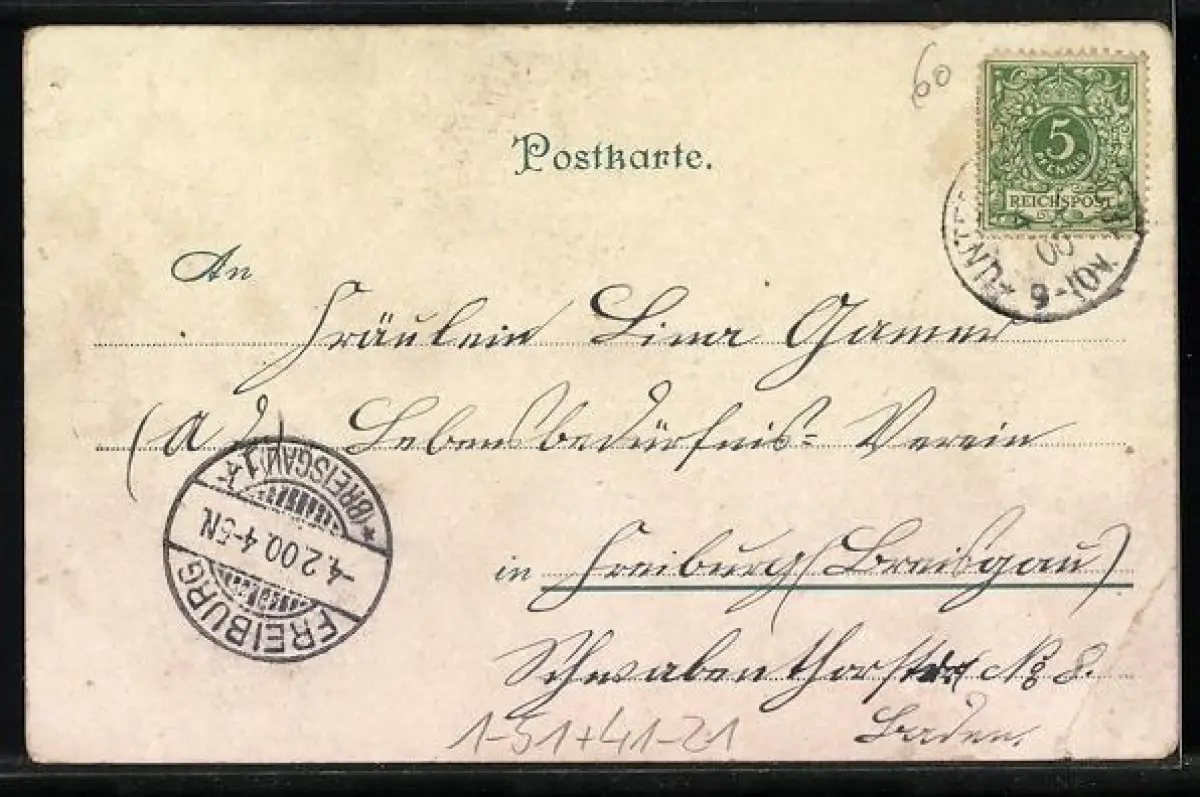 60
Postkarte.
5
PFENNIG
REICHSPOST
00
9-10V.
An
Fräulein Lina Gamer
(Ad) Lebensbedürfnis= Verein
FREIBURG
4.2.00. 4-5N.
* (BREISGAU) 1 k
in Freiburg (Breisgau)
Schwabenthorstr No 8.
Baden.
1-51+41-21